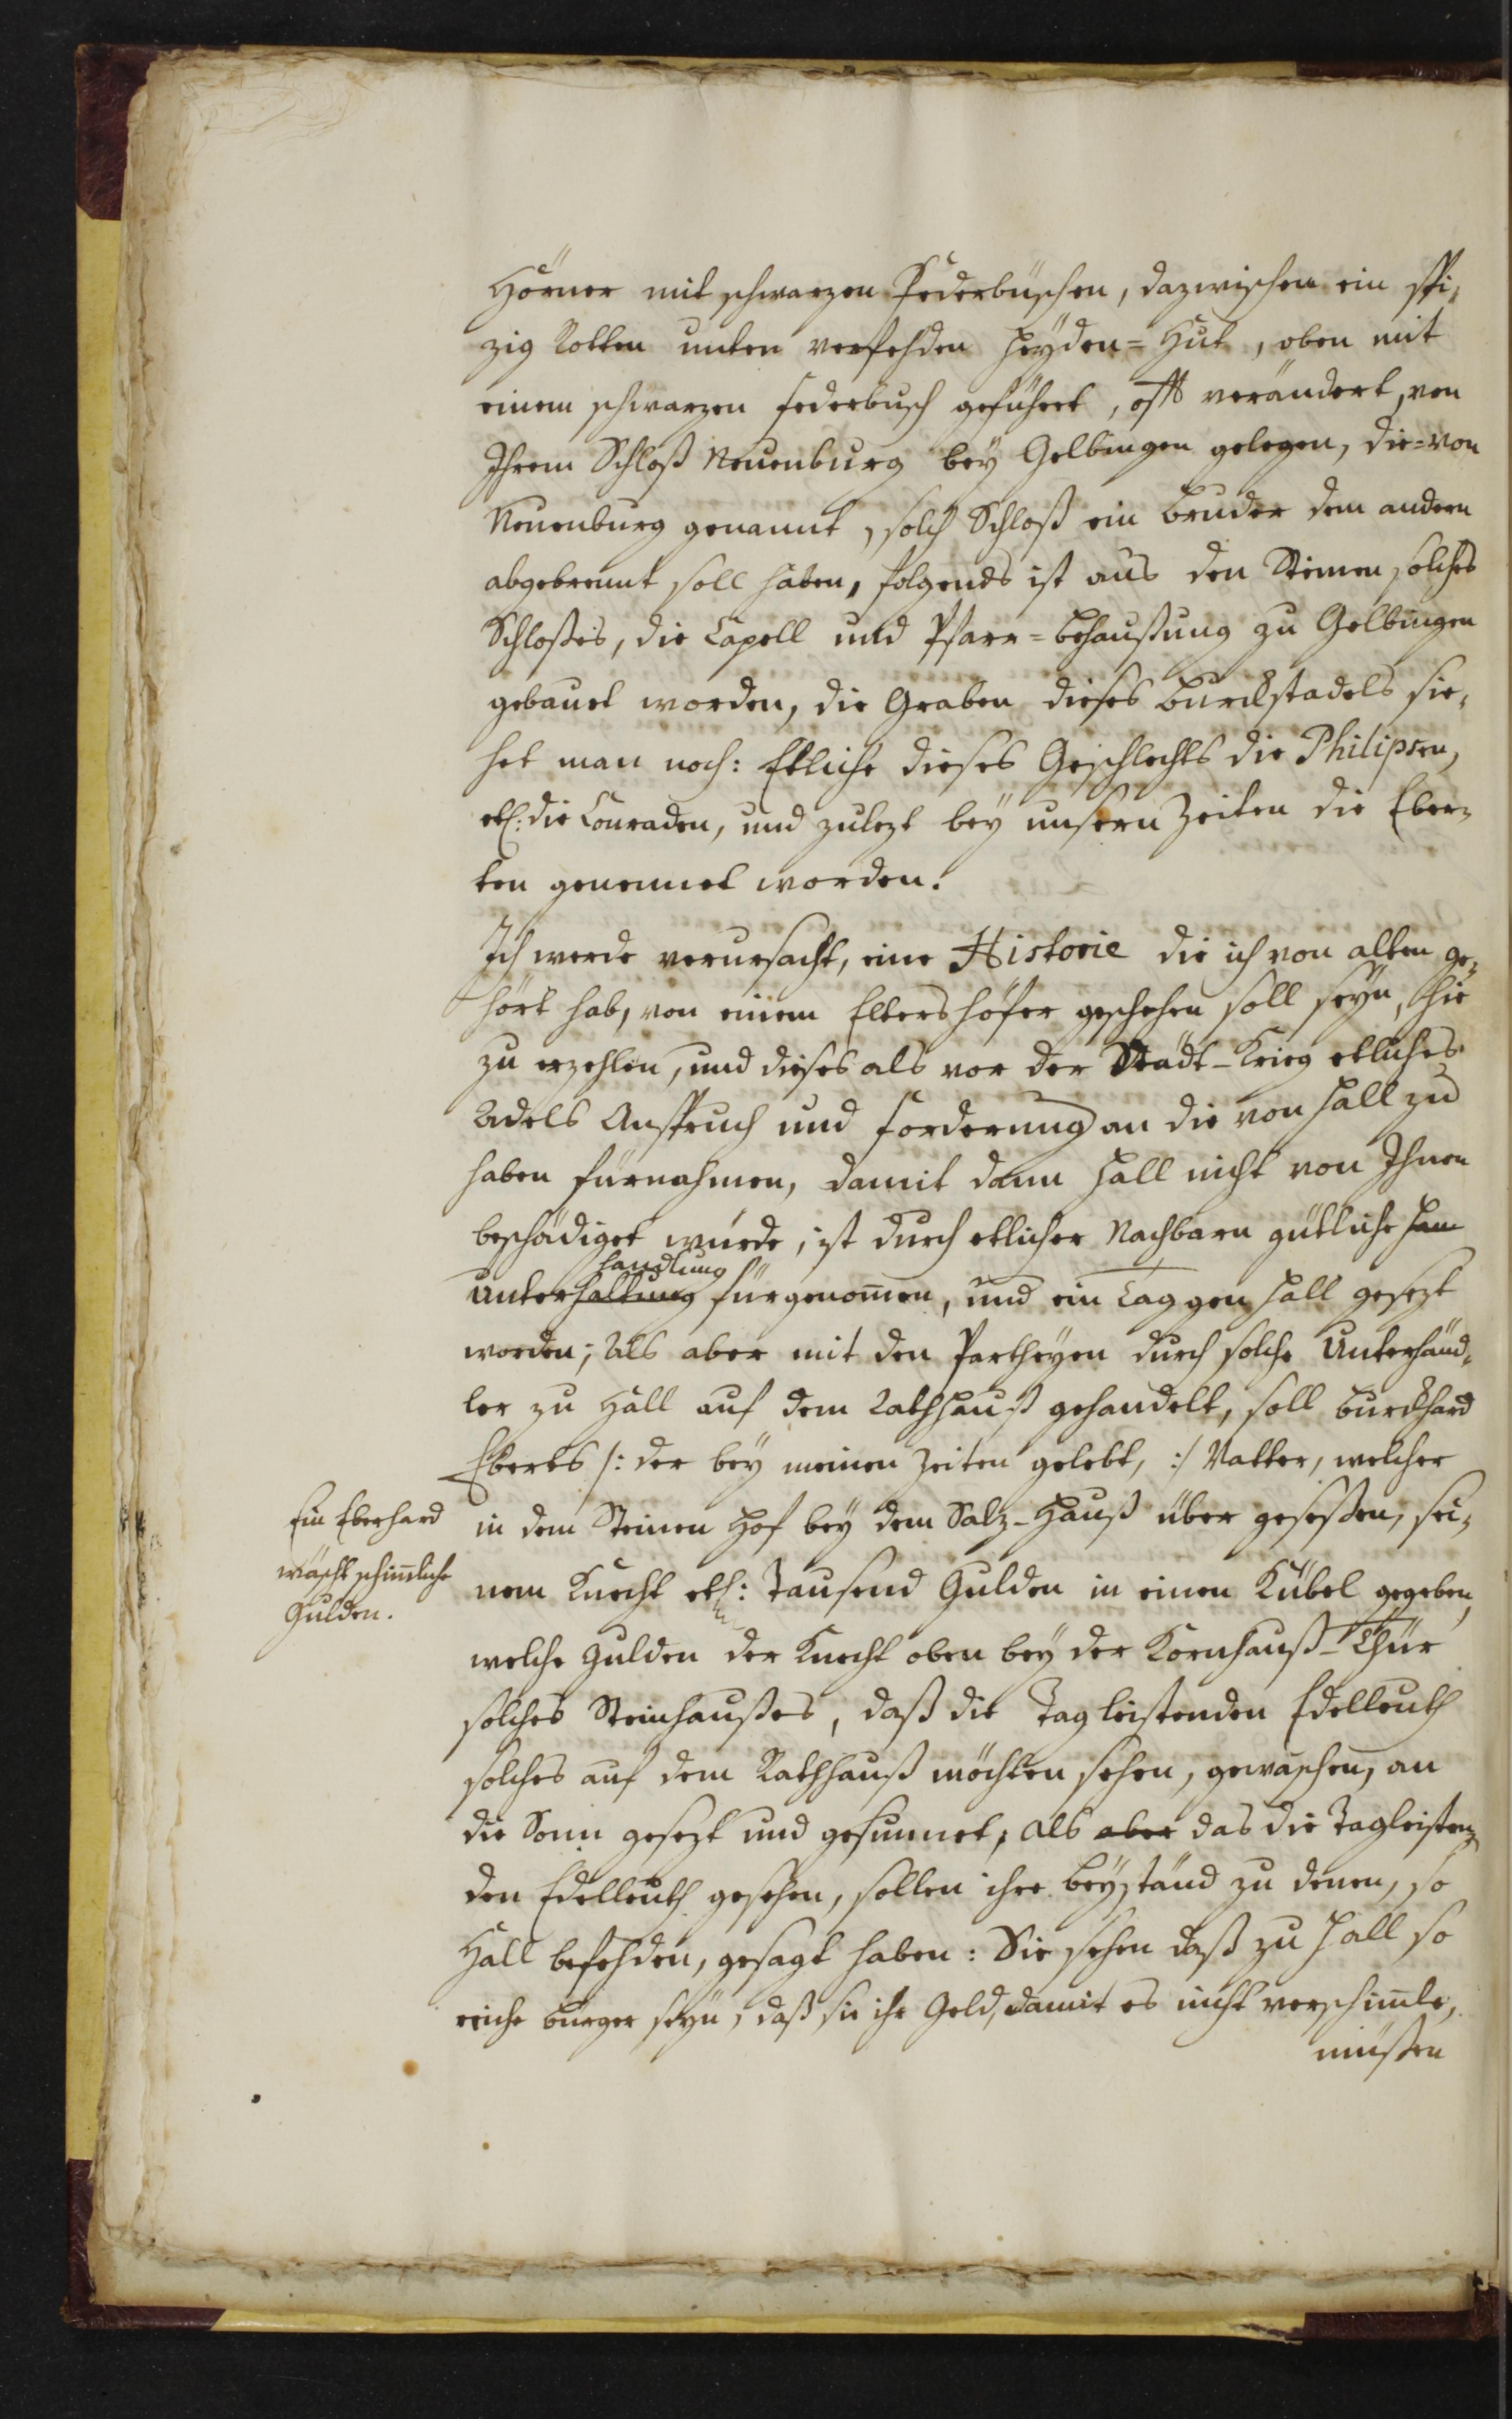 Hörner mit schwarzen Federbüschen, dazwischen ein spi,
zig Rotten unten versehden Heyden=Hut, oben mit
einem schwarzen Federbusch geführt, offt verändert, von
Ihrem Schloß Neuenburg bey Gelbingen gelegen, die=von
Neuenburg genannt, solch Schloß ein Bruder dem andern
abgebrennt soll haben, folgends ist aus den Steinen solches
Schloßes, die Capell und Pfarr=Behaußung zu Gelbingen
gebauet worden, die Graben dieses Burckstadels sie,
het man noch: Etliche dieses Geschlechts die Philipsen,
etl: die Conraden, und zulezt bey unsern Zeiten die Eber,
ten genennet worden.
Ich werde verursacht, eine Historie die ich von alten ge,
hört hab, von einem Eltershofer geschehen soll seyn, hie
zu erzehlen, und dieses als vor der Städt-Krieg etliches
Adels Anspruch und Forderung an die von Hall zu
haben fürnahmen, damit dann Hall nicht von Ihnen
beschädiget würde, ist durch etlicher Nachbarn gütliche Han
handlung
Unterhaltung fürgenommen, und ein Tag gen Hall gesezt
worden; Als aber mit den Partheyen durch solche Unterhänd,
ler zu Hall auf dem Rathhauß gehandelt, soll Burckhard
Eberts /: der bey meinen Zeiten gelebt, :/ Vatter, welcher
in dem Steinen Hof bey dem Salz-Hauß über geseßen, sei,
nem Knecht etl: Tausend Gulden in einen Kübel gegeben,
welche Gulden der Knecht oben bey der Kornhauß-Thür
solches Steinhaußes, daß die Tagleistenden Edelleuth
solches auf dem Rathhauß möchten sehen, gewaschen, an
die Sonn gesezt und gesunnet, als aber das die Tagleisten,
den Edelleuth gesehen, sollen ihre Beyständ zu denen, so
Hall befehden, gesagt haben: Sie sehen daß zu Hall so
reiche Bürger seyn, daß sie ihr Geld, damit es nicht verschimle,
müßen
Ein Eberhard
wäscht schimliche
Gulden.